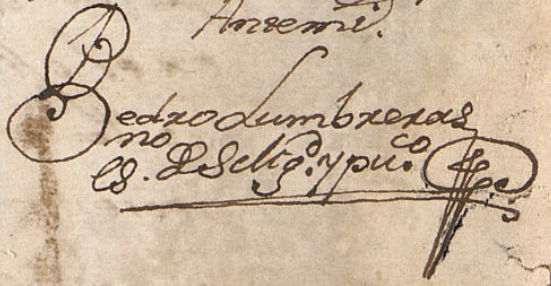 Antemi.
Pedro Lumbreras
es.no R.S del Jg.do y pu.co